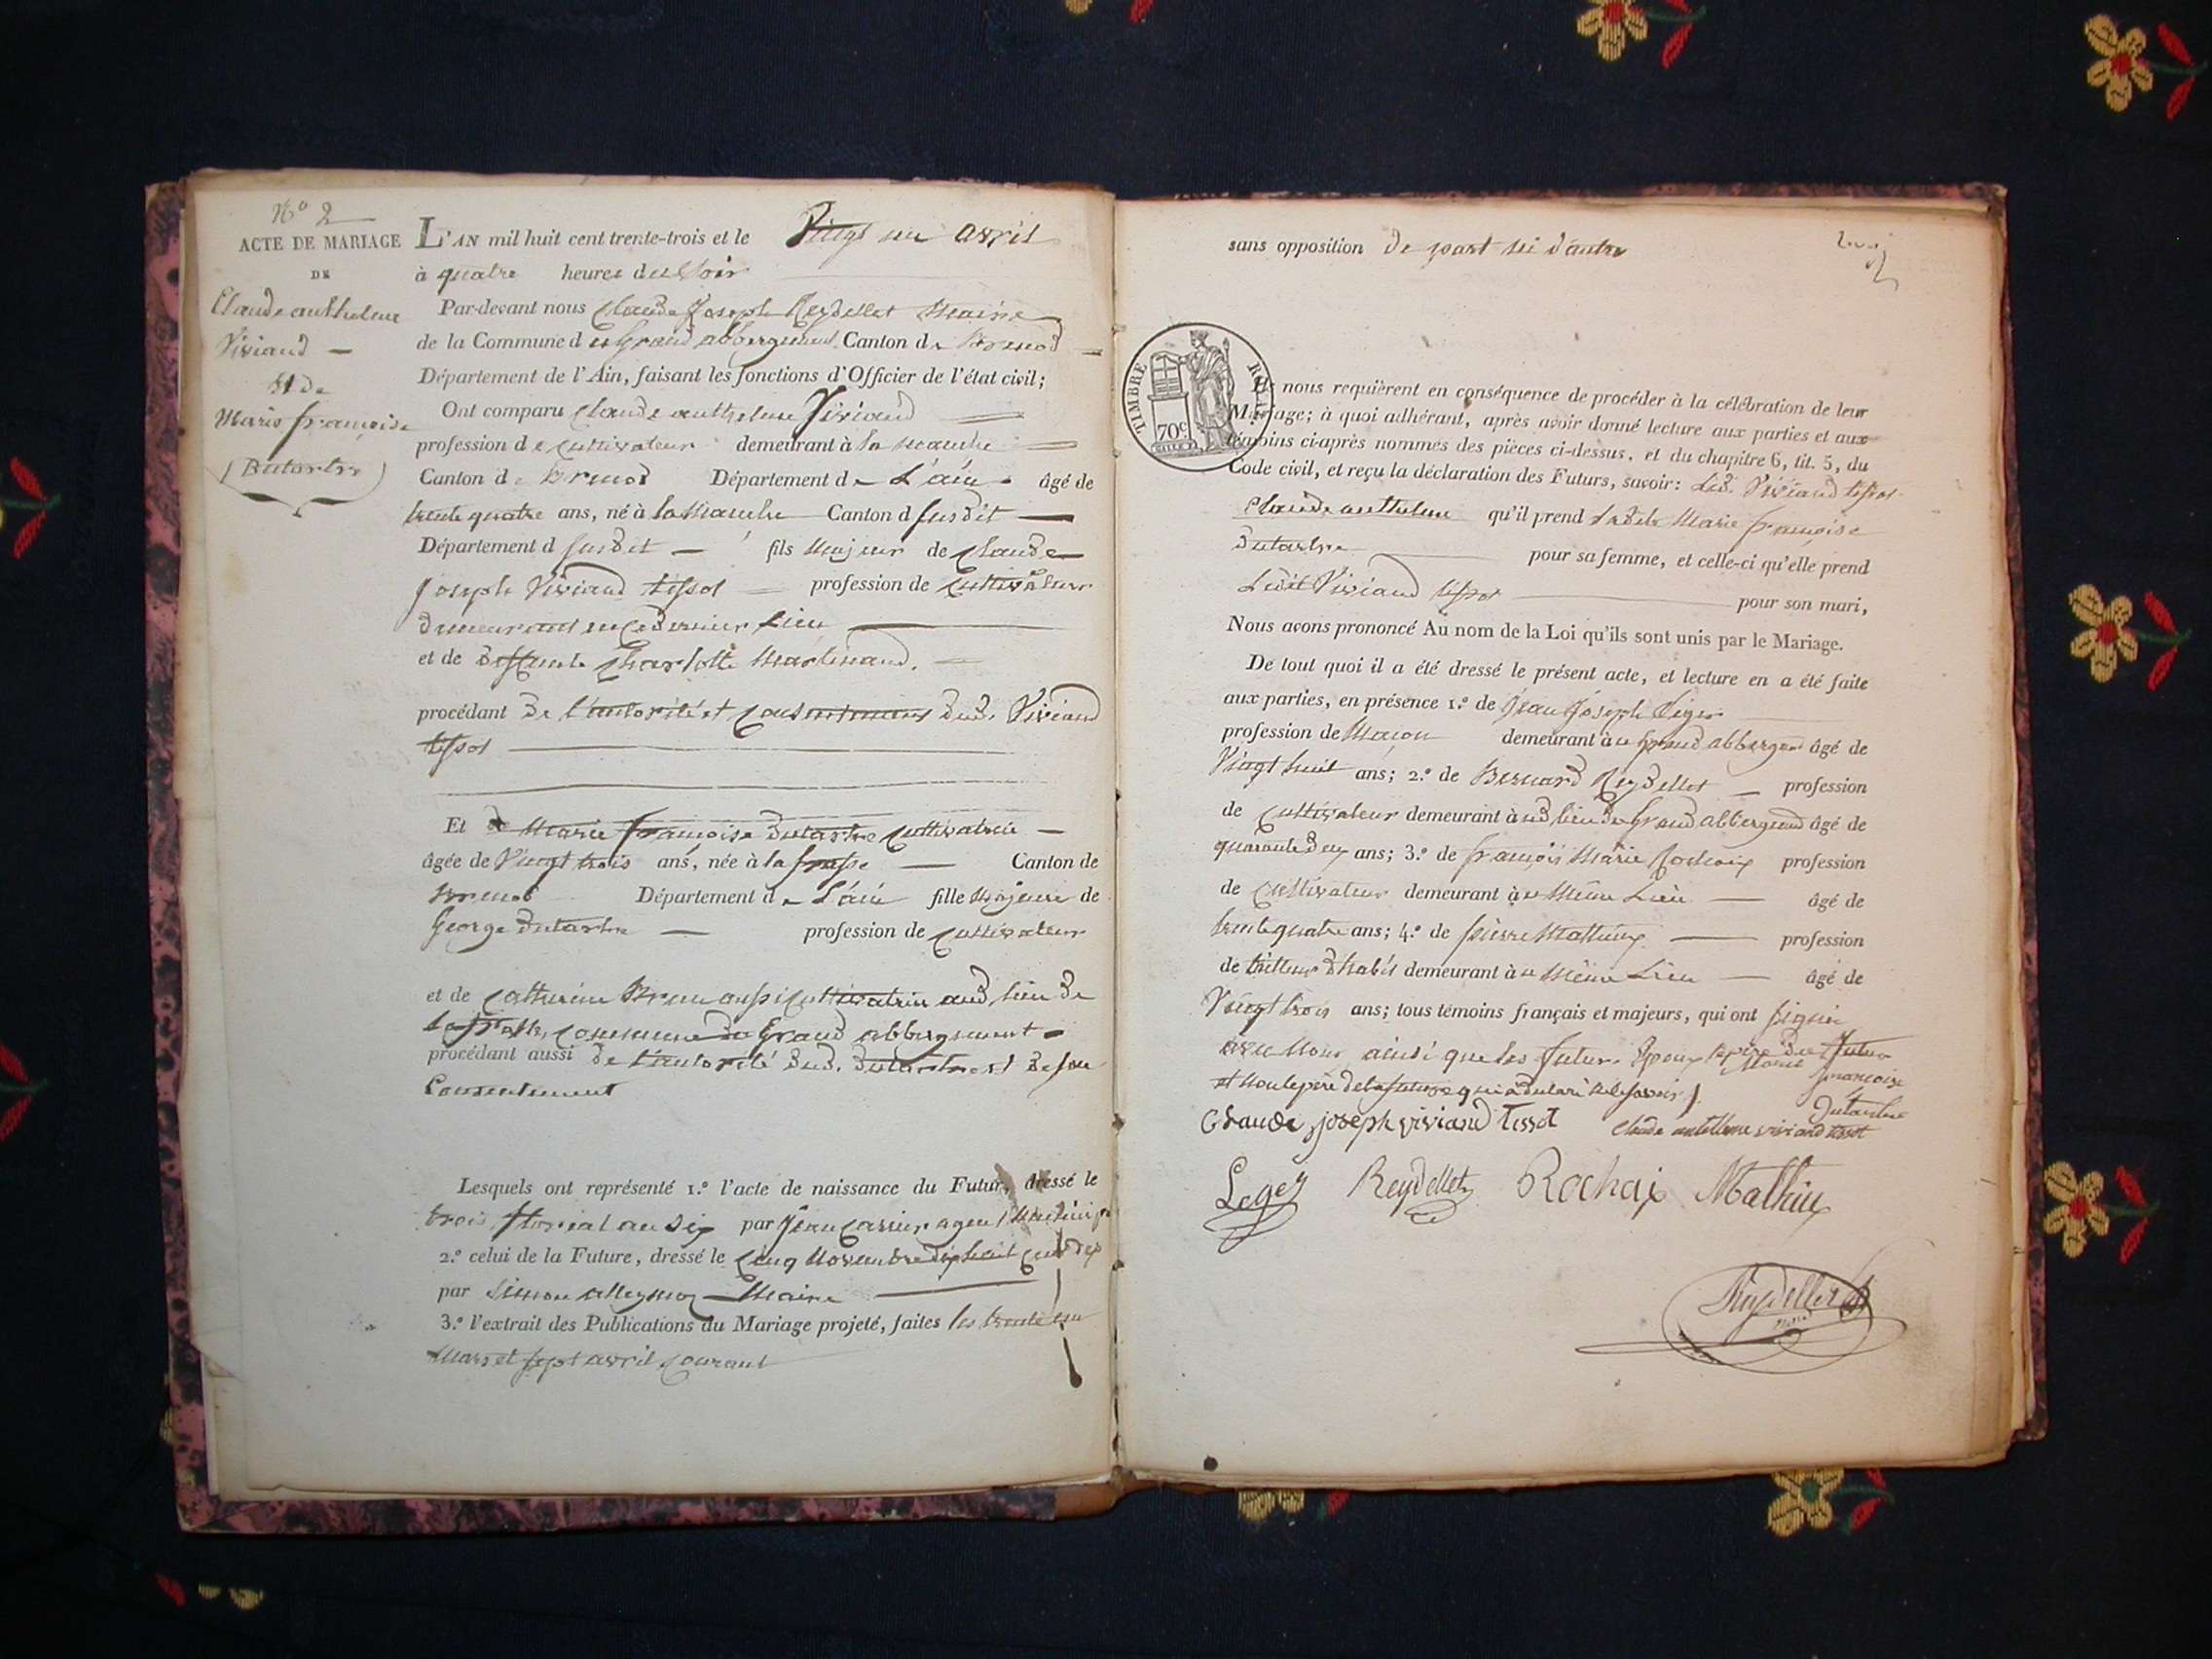 N.º 2
ACTE DE MARIAGE
DE
Claude anthelme
Viviand —
Et de
Marie françoise
Dutartre
L'AN mil huit cent trente-trois et le Vingt un avril
à quatre heures du Soir
Par-devant nous Claude Joseph Reydellet Maire
de la Commune du Grand abbergement Canton de Brenod
Département de l'Ain, faisant les fonctions d'Officier de l'état civil;
Ont comparu Claude anthelme Viviand
profession de cultivateur demeurant à la Manche
Canton de Brenod Département de L'ain âgé de
trente quatre ans, né à la Manche Canton d susdit
Département d susdit fils Majeur de Claude
Joseph Viviand tissot profession de Cultivateur
demeurant en ce dernier Lieu
et de deffunte Charlotte Martinand.
procédant de l'autorité et Consentement dud. Viviand
tissot
Et de Marie françoise dutartre cultivatrice
âgée de Vingt trois ans, née à la Canton de
Brenod Département de L'ain fille Majeure de
George dutartre profession de cultivateur
et de Catherine Brun aussi cultivatrice aud. lieu de
commune du Grand abbergement
procédant aussi de l'autorité dud. dutartre et de son
Consentement
Lesquels ont représenté 1.º l'acte de naissance du Futur, dressé le
trois floréal an Six par Jean Carrier agent Municipal
2.º celui de la Future, dressé le Cinq Novembre dix huit cent dix
par Simon Maire
3.º l'extrait des Publications du Mariage projeté, faites les trente un
Mars et sept avril courant
sans opposition de part ni d'autre
TIMBRE ROYAL
70c
Et nous requièrent en conséquence de procéder à la célébration de leur
Mariage; à quoi adhérant, après avoir donné lecture aux parties et aux
témoins ci-après nommés des pièces ci-dessus, et du chapitre 6, tit. 5, du
Code civil, et reçu la déclaration des Futurs, savoir: Led. Viviand tissot
Claude anthelme qu'il prend Marie françoise
dutartre pour sa femme, et celle-ci qu'elle prend
Ledit Viviand tissot pour son mari,
Nous avons prononcé Au nom de la Loi qu'ils sont unis par le Mariage.
De tout quoi il a été dressé le présent acte, et lecture en a été faite
aux parties, en présence 1.º de Jean Joseph Léger
profession de Maçon demeurant au Grand abbergent âgé de
Vingt huit ans; 2.º de Bernard Reydellet profession
de Cultivateur demeurant aud. lieu du Grand abbergement âgé de
quarante deux ans; 3.º de françois Marie Rochaix profession
de Cultivateur demeurant au Même Lieu âgé de
trente quatre ans; 4.º de pierre Mathieux profession
de tailleur d'habit demeurant au Même Lieu âgé de
Vingt trois ans; tous témoins français et majeurs, qui ont signé
avec Nous ainsi que les futurs Epoux le père du futur
et Non le père de la future qui a déclaré ne le savoir
Marie françoise
Dutartre
Claude joseph viviand tissot claude antelme viviand tissot
Leger Reydellet Rochaix Mathieux
Reydellet